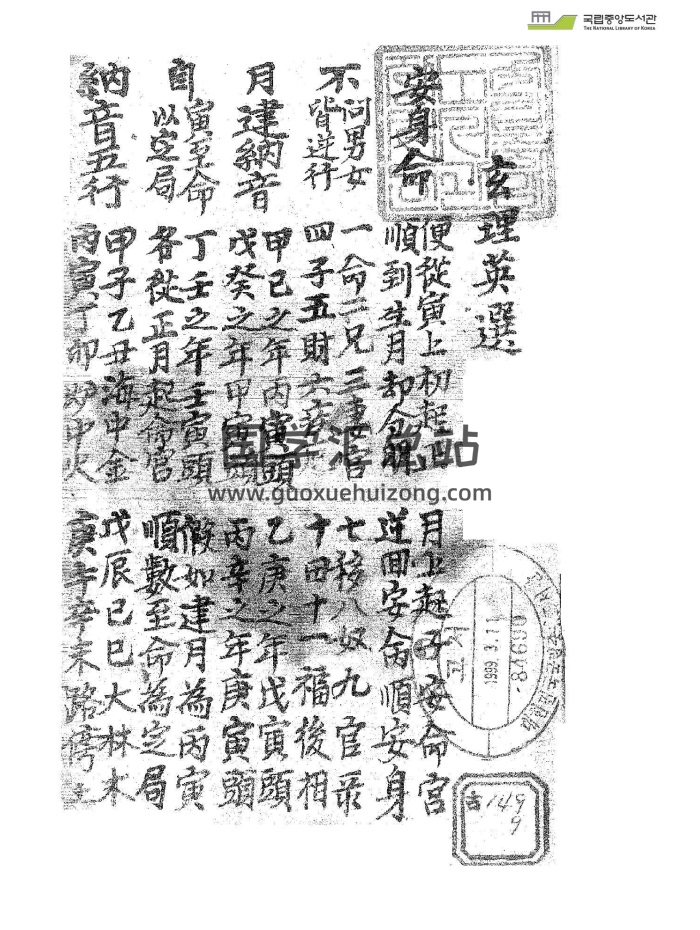 국립중앙도서관
THE NATIONAL LIBRARY OF KOREA
玄理英選
安身命
便從寅上初起正
月上起子安命宮
順到生月却
逆回安命順安身
不問男女
皆逆行
一命二兄三妻宮
七移八奴九官录
四子五財六
十田十一福後相
月建納音
甲己之年丙寅頭
乙庚之年戊寅頭
戊癸之年甲寅頭
丙辛之年庚寅頭
自寅至命
以定局
丁壬之年壬寅頭
假如建月為丙寅
各從正月起命宮
順數至命為定局
納音五行
甲子乙丑海中金
戊辰己巳大林木
丙寅丁卯炉中火
庚午辛未路傍土
国学汇总站
www.guoxuehuizong.com
고서
1999. 3. 11
84690
古149
9